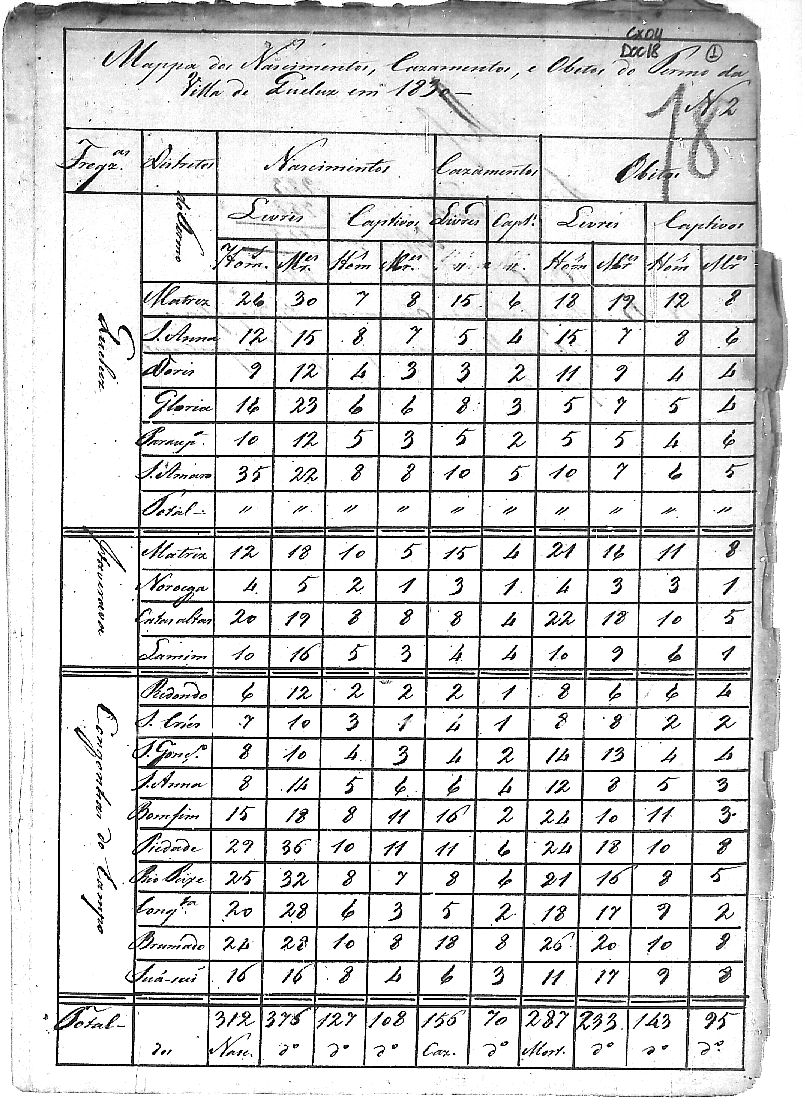 CX04
DOC18 1
Mappa dos Nascimentos, Cazamentos, e Obitos do Termo da
Villa de Queluz em 1830 —
N. 2
18
Fregz.as Districtos Nascimentos Cazamentos Obitos
do Termo Livres Captivos Livres Capt.s Livres Captivos
Hom. Mr.es Hom Mr.es " " Hom Mr.es Hom Mr.es
Queluz
Matriz 26 30 7 8 15 6 18 19 12 8
S. Anna 12 15 8 7 5 4 15 7 8 6
9 12 4 3 3 2 11 9 4 4
Gloria 16 23 6 6 8 3 5 7 5 4
10 12 5 3 5 2 5 5 4 6
S. Amaro 35 22 8 8 10 5 10 7 6 5
Total — " " " " " " " " " "
Itaverava
Matriz 12 18 10 5 15 4 21 16 11 8
Noroega 4 5 2 1 3 1 4 3 3 1
Catas altas 20 19 8 8 8 4 22 18 10 5
Lamim 10 16 5 3 4 4 10 9 6 1
Congonhas do Campo
Redondo 6 12 2 2 2 1 8 6 6 4
7 10 3 1 4 1 8 8 2 2
S. Gonç.o 8 10 4 3 4 2 14 13 4 4
S. Anna 8 14 5 6 6 4 12 8 5 3
Bomfim 15 18 8 11 16 2 24 10 11 3
Piedade 29 36 10 11 11 6 24 18 10 8
Rio Peixe 25 32 8 7 8 6 21 16 8 5
Cong.as 20 28 6 3 5 2 18 17 9 2
Brumado 24 28 10 8 18 8 26 20 10 8
Suá-suí 16 16 8 4 6 3 11 17 9 8
Total — 312 376 127 108 156 70 287 233 143 95
dos Nasc. d.o d.o d.o Caz. d.o Mort. d.o d.o d.o